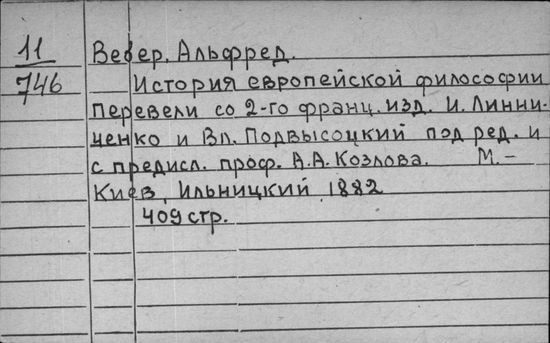 11
746
Вебер, Альфред.
История европейской философии
Перевели со 2-го франц. изд. И. Линни-
ченко и Вл. Подвысоцкий под ред. и
с предисл. проф. А.А. Козлова. М.-
Киев, Ильницкий 1882
409 стр.